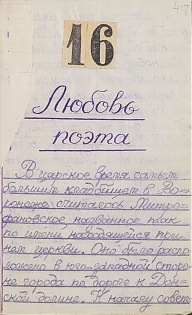 47
16
Любовь
поэта
В царское время самым
большим кладбищем в Во-
ронеже считалось Митро-
фановское, названное так
по имени находящейся при
нем церкви. Оно было распо-
ложено в юго-западной сторо-
не города по дороге к Дон-
ской долине. К началу совет-